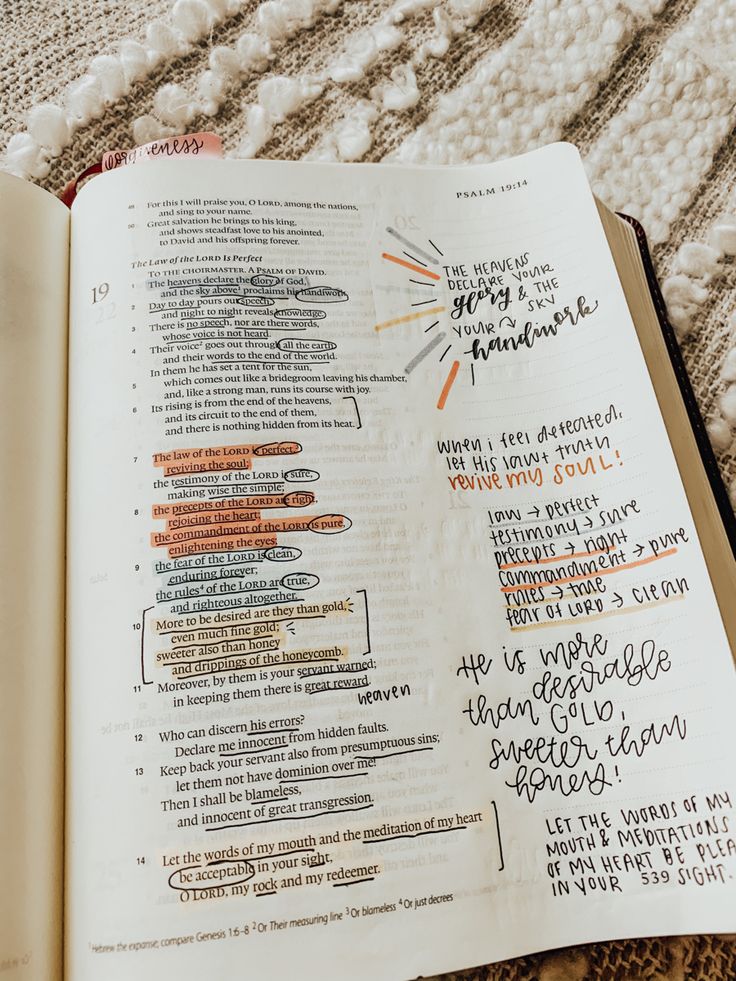 forgiveness
PSALM 19:14
49 For this I will praise you, O LORD, among the nations,
and sing to your name.
50 Great salvation he brings to his king,
and shows steadfast love to his anointed,
to David and his offspring forever.
The Law of the LORD Is Perfect
19 TO THE CHOIRMASTER. A PSALM OF DAVID.
1 The heavens declare the glory of God,
and the sky above¹ proclaims his handiwork.
2 Day to day pours out speech,
and night to night reveals knowledge.
3 There is no speech, nor are there words,
whose voice is not heard.
4 Their voice² goes out through all the earth,
and their words to the end of the world.
In them he has set a tent for the sun,
5 which comes out like a bridegroom leaving his chamber,
and, like a strong man, runs its course with joy.
6 Its rising is from the end of the heavens,
and its circuit to the end of them,
and there is nothing hidden from its heat.
7 The law of the LORD is perfect,³
reviving the soul;
the testimony of the LORD is sure,
making wise the simple;
8 the precepts of the LORD are right,
rejoicing the heart;
the commandment of the LORD is pure,
enlightening the eyes;
9 the fear of the LORD is clean,
enduring forever;
the rules⁴ of the LORD are true,
and righteous altogether.
10 More to be desired are they than gold,
even much fine gold;
sweeter also than honey
and drippings of the honeycomb.
11 Moreover, by them is your servant warned;
in keeping them there is great reward.
heaven
12 Who can discern his errors?
Declare me innocent from hidden faults.
13 Keep back your servant also from presumptuous sins;
let them not have dominion over me!
Then I shall be blameless,
and innocent of great transgression.
14 Let the words of my mouth and the meditation of my heart
be acceptable in your sight,
O LORD, my rock and my redeemer.
¹ Hebrew the expanse; compare Genesis 1:6–8 ² Or Their measuring line ³ Or blameless ⁴ Or just decrees
THE HEAVENS
DECLARE YOUR
glory & THE
SKY
YOUR
handiwork
when i feel defeated,
let His law truth
revive my SOUL!
law → perfect
testimony → sure
precepts → right
commandment → pure
rules → true
fear of LORD → clean
He is more
desirable
than GOLD,
sweeter than
honey!
LET THE WORDS OF MY
MOUTH & MEDITATIONS
OF MY HEART BE PLEA
IN YOUR SIGHT.
539